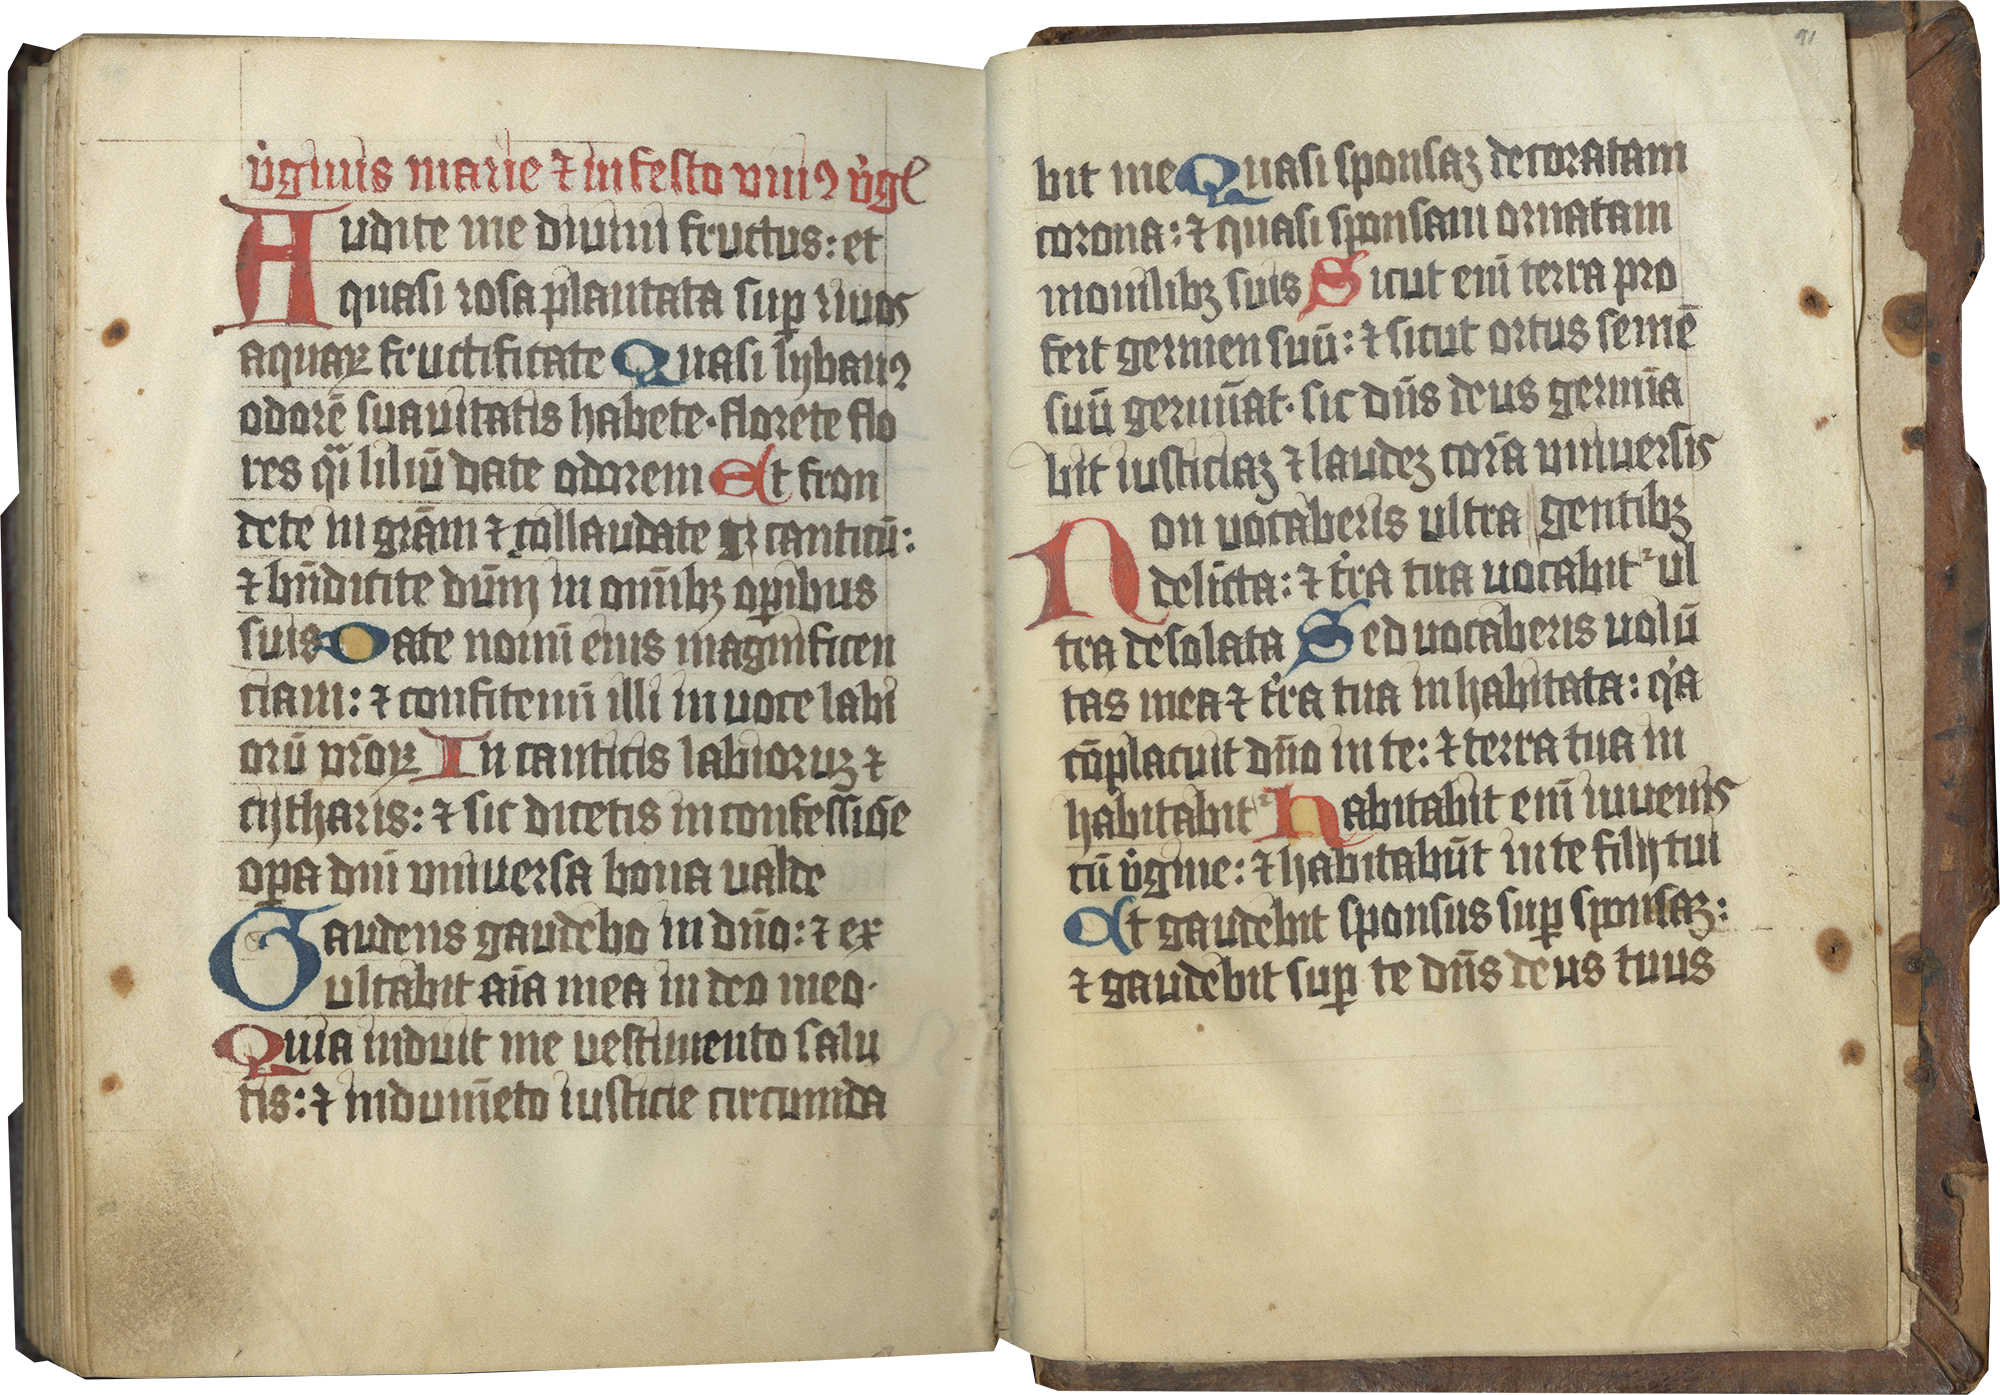 v̓ginis marie ⁊ in festo vniꝰ v̓gĩs
Audite me diuini fructus: et
quasi rosa plantata suꝑ riuos
aquaꝝ fructificate Quasi lybanꝰ
odorē suauitatis habete· florete flo
res qͣi liliū date odorem Et fron
dete in grām ⁊ collaudate cantitū:
⁊ bn̄dicite dūm in om̄ibꝫ oꝑibus
suis Date nomī eius magnificen
ciam: ⁊ confitemī illi in uoce labi
orū vr̄oꝝ In canticis labioruꝫ ⁊
cytharis: ⁊ sic dicetis in confessiōe
oꝑa dnī vniuersa bona ualde
Gaudens gaudebo in dn̄o: ⁊ ex
ultabit aīa mea in deo meo·
Quia induit me vestimento salu
tis: ⁊ indum̄eto iusticie circumda
bit me Quasi sponsaꝫ decoratam
corona: ⁊ quasi sponsam ornatam
monilibꝫ suis Sicut enī terra pro
fert germen suū: ⁊ sicut ortus semē
suū germīat· sic dn̄s deus germīa
bit iusticiaꝫ ⁊ laudeꝫ corā vniuersis
gentibꝫ
Non uocaberis ultra
delicta: ⁊ t̓ra tua uocabit᷑ ul
tra desolata Sed uocaberis uolū
tas mea ⁊ t̓ra tua inhabitata: qͥa
cōplacuit dn̄o in te: ⁊ terra tua in
habitabit᷑ habitabit enī iuuenis
cū v̓gine: ⁊ habitabūt in te filij tui
Et gaudebit sponsus suꝑ sponsaꝫ:
⁊ gaudebit suꝑ te dn̄s deus tuus
91